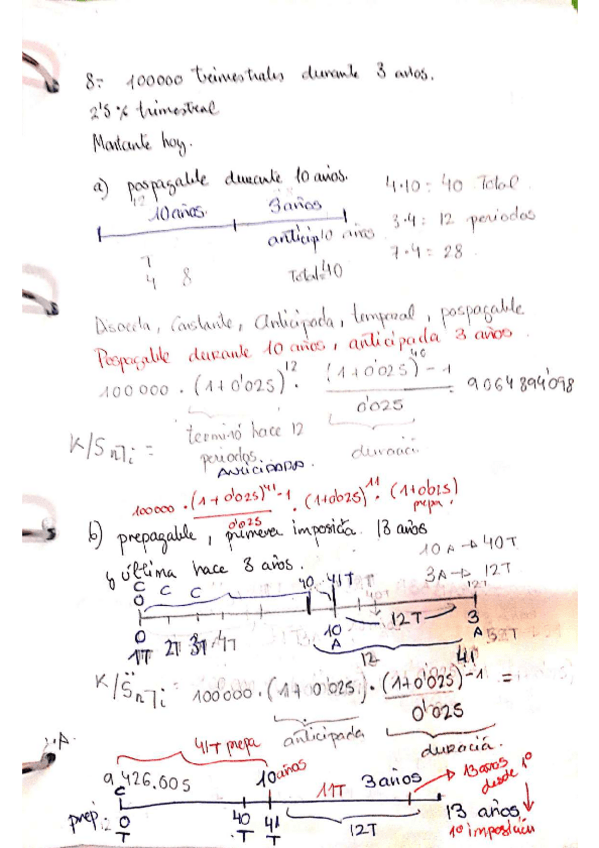 8= 100000 trimestrales durante 3 años.
2'5 % trimestral
Montante hoy.
a) pospagable durante 10 años.
4·10 = 40 Total
12
10 años. 3 años
3·4 = 12 periodos
anticip 10 años
7·4 = 28
4 8
Total=40
Discreta, Constante, Anticipada, temporal, pospagable
Pospagable durante 10 años, anticipada 3 años
100000 · (1+0'025)^12 · (1+0'025)^40 - 1 = 9064894'098
0'025
K/S n⌉i = terminó hace 12 periodos.
duración
ANTICIPADA
100000 · (1+0'025)^41 - 1 · (1+0'025)^11 · (1+0'025)
0'025
prepa.
b) prepagable, primera imposición 13 años
y última hace 3 años.
10 A → 40T
3A → 12T
C C C 40 41T T
12T
0 10 A 3 A
1T 2T 3T 4T 52T
12 41
K/S̈ n⌉i = 100000 · (1+0'025) · (1+0'025)^41 - 1 =
0'025
anticipada
duración.
41T prepa
9,426.605 10 años 11T 3 años → 13 años desde 1º
C
prep: 0 T 40 T 41 T 12T 13 años
1º imposición